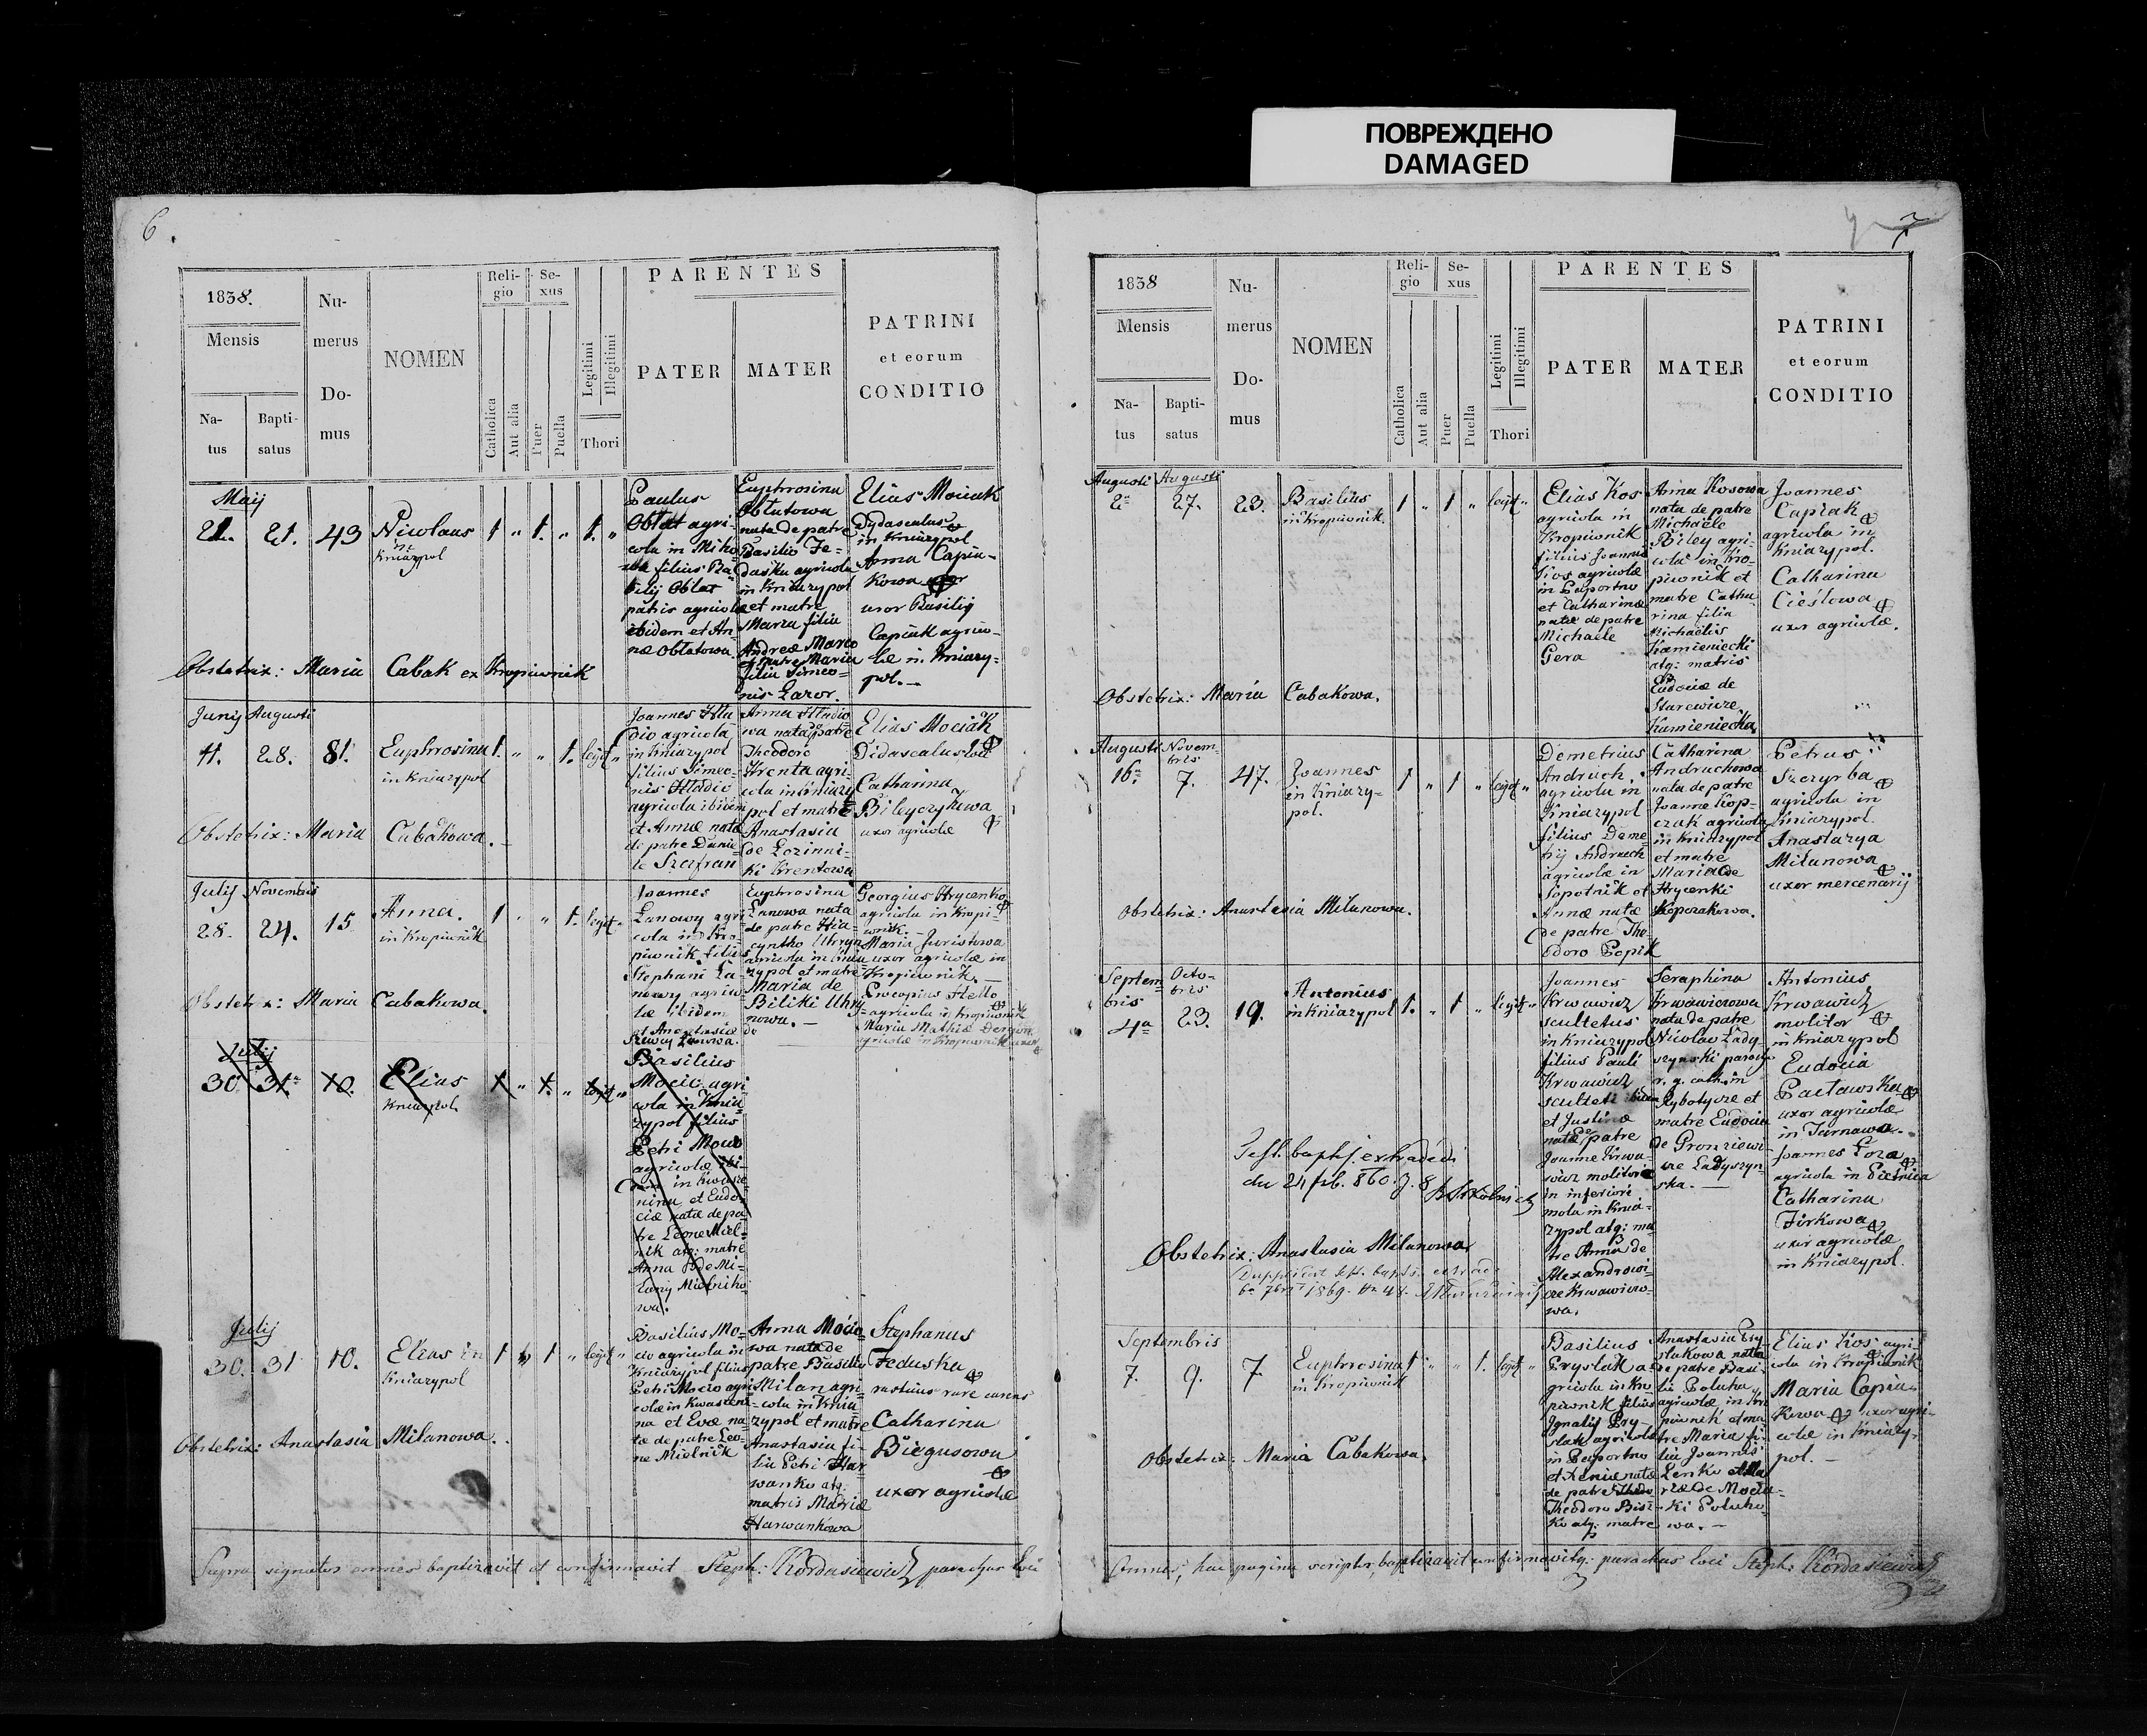 ПОВРЕЖДЕНО
DAMAGED
6.
1838.
Mensis
Na-
tus
Bapti-
satus
Nu-
merus
Do-
mus
NOMEN
Reli-
gio
Catholica
Aut alia
Se-
xus
Puer
Puella
Legitimi
Illegitimi
Thori
PARENTES
PATER
MATER
PATRINI
et eorum
CONDITIO
Maij
21. 21. 43
Nicolaus
in
Kniazypol
1 " 1. " 1. "
Paulus
Oblat agri-
cola in
filius Ba-
silij Oblat
patris agricolæ
ibidem et An-
næ Oblatowa.
Euphrosina
Oblatowa
nata de patre
Basilio Fe-
daśku agricola
in Kniazypol
et matre
Maria filia
Andreæ Marco
et matre Maria
filia Simeo-
nis Lazor.
Elias Mociak
Dydascalus
in Kniazypol
Anna Capia-
kowa
uxor Basilij
Capiak agrico-
læ in Kniazy-
pol.-
Obstetrix: Maria Cabak ex Kropiwnik
Junij Augusti
11. 28. 81.
Euphrosina
in Kniazypol
1. " " 1. legit "
Joannes Hla-
dio agricola
in Kniazypol
filius Simeo-
nis Hladio
agricola ibidem
et Annæ nata
de patre Danie-
le Szafran
Anna Hladio-
wa nata de patre
Theodoro
Krenta agri-
cola in Kniazy-
pol et matre
Anastasia
de Lozinni-
ki Krentowa
Elias Mociak
Didascalus loci
Catharina
uxor agricolæ
Obstetrix: Maria Cabakowa.-
Julij Novembris
28. 24. 15
Anna.
in Kropiwnik
1 " " 1. legit "
Joannes
Lanowy agri-
cola in Kro-
piwnik filius
Stephani La-
nowy agrico-
læ ibidem
et Anastasiæ de
Lanowa.
Euphrosina
Lanowa nata
de patre Hia-
cyntho Uhryn
agricola in Knia-
zypol et matre
Maria de
Biliki Uhry-
nowa.-
Georgius Hrycenko
agricola in Kropi-
wnik.-
Maria Juristowa
uxor agricolæ in
Kropiwnik.-
Procopius Hello
agricola in Kropiwnik
Maria Mathiæ
agricolæ in Kropiwnik uxor
Obstetrix: Maria Cabakowa.
Julij
30 31. 10.
Elias
Kniazypol.
1 " 1. " legit "
Basilius
Mocio agri-
cola in Knia-
zypol filius
Petri Mocio
agricolæ
in Kwasze-
nina et Eudo-
ciæ natæ de pa-
tre Leone Miel-
nik atq: matre
Anna de Mi-
Mielniko-
wa.
Julij
30. 31 10.
Elias in
Kniazypol
1 " 1 " legit "
Basilius Mo-
cio agricola in
Kniazypol filius
Petri Mocio agri-
colæ in Kwaszeni-
na et Evæ na-
tæ de patre Leo-
ne Mielnik
Anna Mocio-
wa nata de
patre Basilio
Milan agri-
cola in Knia-
zypol et matre
Anastasia fi-
lia Petri Har-
wanko atq:
matris Mariæ
Harwankowa
Stephanus
Feduska
rusticus rure carens
Catharina
Biegusowa
uxor agricolæ
Obstetrix: Anastasia Milanowa.
Supra signatos omnes baptizavit et confirmavit Steph: Kordasiewicz parochus loci
7
1838
Mensis
Na-
tus
Bapti-
satus
Nu-
merus
Do-
mus
NOMEN
Reli-
gio
Catholica
Aut alia
Se-
xus
Puer
Puella
Legitimi
Illegitimi
Thori
PARENTES
PATER
MATER
PATRINI
et eorum
CONDITIO
Augusti Augusti
2a 27. 23.
Basilius
in Kropiwnik.
1 " 1 " legit "
Elias Kos
agricola in
Kropiwnik
filius Joannis
Kos agricolæ
in Paportno
et Catharinæ
natæ de patre
Michaele
Gera
Anna Kosowa
nata de patre
Michaele
Biley agri-
cola in Kro-
piwnik et
matre Catha-
rina filia
Michaelis
Kamieniecki
atq: matris
Eudociæ de
Starewicze
Kamieniecka
Joannes
Capiak
agricola in
Kniazypol.
Catharina
Cieślowa
uxor agricolæ.
Obstetrix: Maria Cabakowa.
Augusti Novem-
bris
16a 7. 47.
Joannes
in Kniazy-
pol.
1 " 1 " legit "
Demetrius
Andruch,
agricola in
Kniazypol
filius Deme-
trij Andruch
agricolæ in
Sopotnik et
Annæ natæ
de patre Theo-
doro Popik
Catharina
Andruchowa
nata de patre
Joanne Kop-
czak agricola
in Kniazypol
et matre
Maria de
Hrycenki
Kopczakowa.
Petrus
Szczyrba
agricola in
Kniazypol.
Anastazya
Milanowa
uxor mercenarij
Obstetrix: Anastasia Milanowa.
Septem-
bris
Octo-
bris
4a 23. 19.
Antonius
in Kniazypol
1. " 1 " legit "
Joannes
Krwawicz
scultetus
in Kniazypol
filius Pauli
Krwawicz
sculteti ibidem
et Justinæ
natæ de patre
Joanne Krwa-
wicz molitore
in inferiori
mola in Knia-
zypol atq: ma-
tre Anna de
Alexandrowi-
cze Krwawiczo-
wa.
Seraphina
Krwawiczowa
nata de patre
Nicolao Lady-
szynski parocho
r. g. cath. in
Rybotycze et
matre Eudocia
de Gronziewi-
cze Ladyszyn-
ska.-
Antonius
Krwawicz
molitor
in Kniazypol
Eudocia
Pacławska
uxor agricolæ
in Tarnawa.-
Joannes Łoza
agricola in
Catharina
Firkowa
uxor agricolæ
in Kniazypol.
Test. bapt. extradedi
du 24 860.
Obstetrix: Anastasia Milanowa
1869.
Septembris
7. 9. 7.
Euphrosina
in Kropiwnik
1 " " 1. legit "
Basilius
Pryslak a-
gricola in Kro-
piwnik filius
Ignatij Pry-
slak agricolæ
in Paportno
et Xeniæ natæ
de patre
Theodoro Bisi-
ko atq: matre
Anastasia Pry-
slakowa nata
de patre Basi-
lio Poluha
agricola in Kro-
piwnik et ma-
tre Maria fi-
lia Joannis
Lenko et Ma-
riæ de Mocia-
ki Poluho-
wa.-
Elias Kos agri-
cola in Kropiwnik
Maria Capia-
kowa uxor agri-
colæ in Kniazy-
pol.-
Obstetrix: Maria Cabakowa.
Omnes, hac pagina scriptos, baptizavit confirmavitq: parochus loci Steph: Kordasiewicz